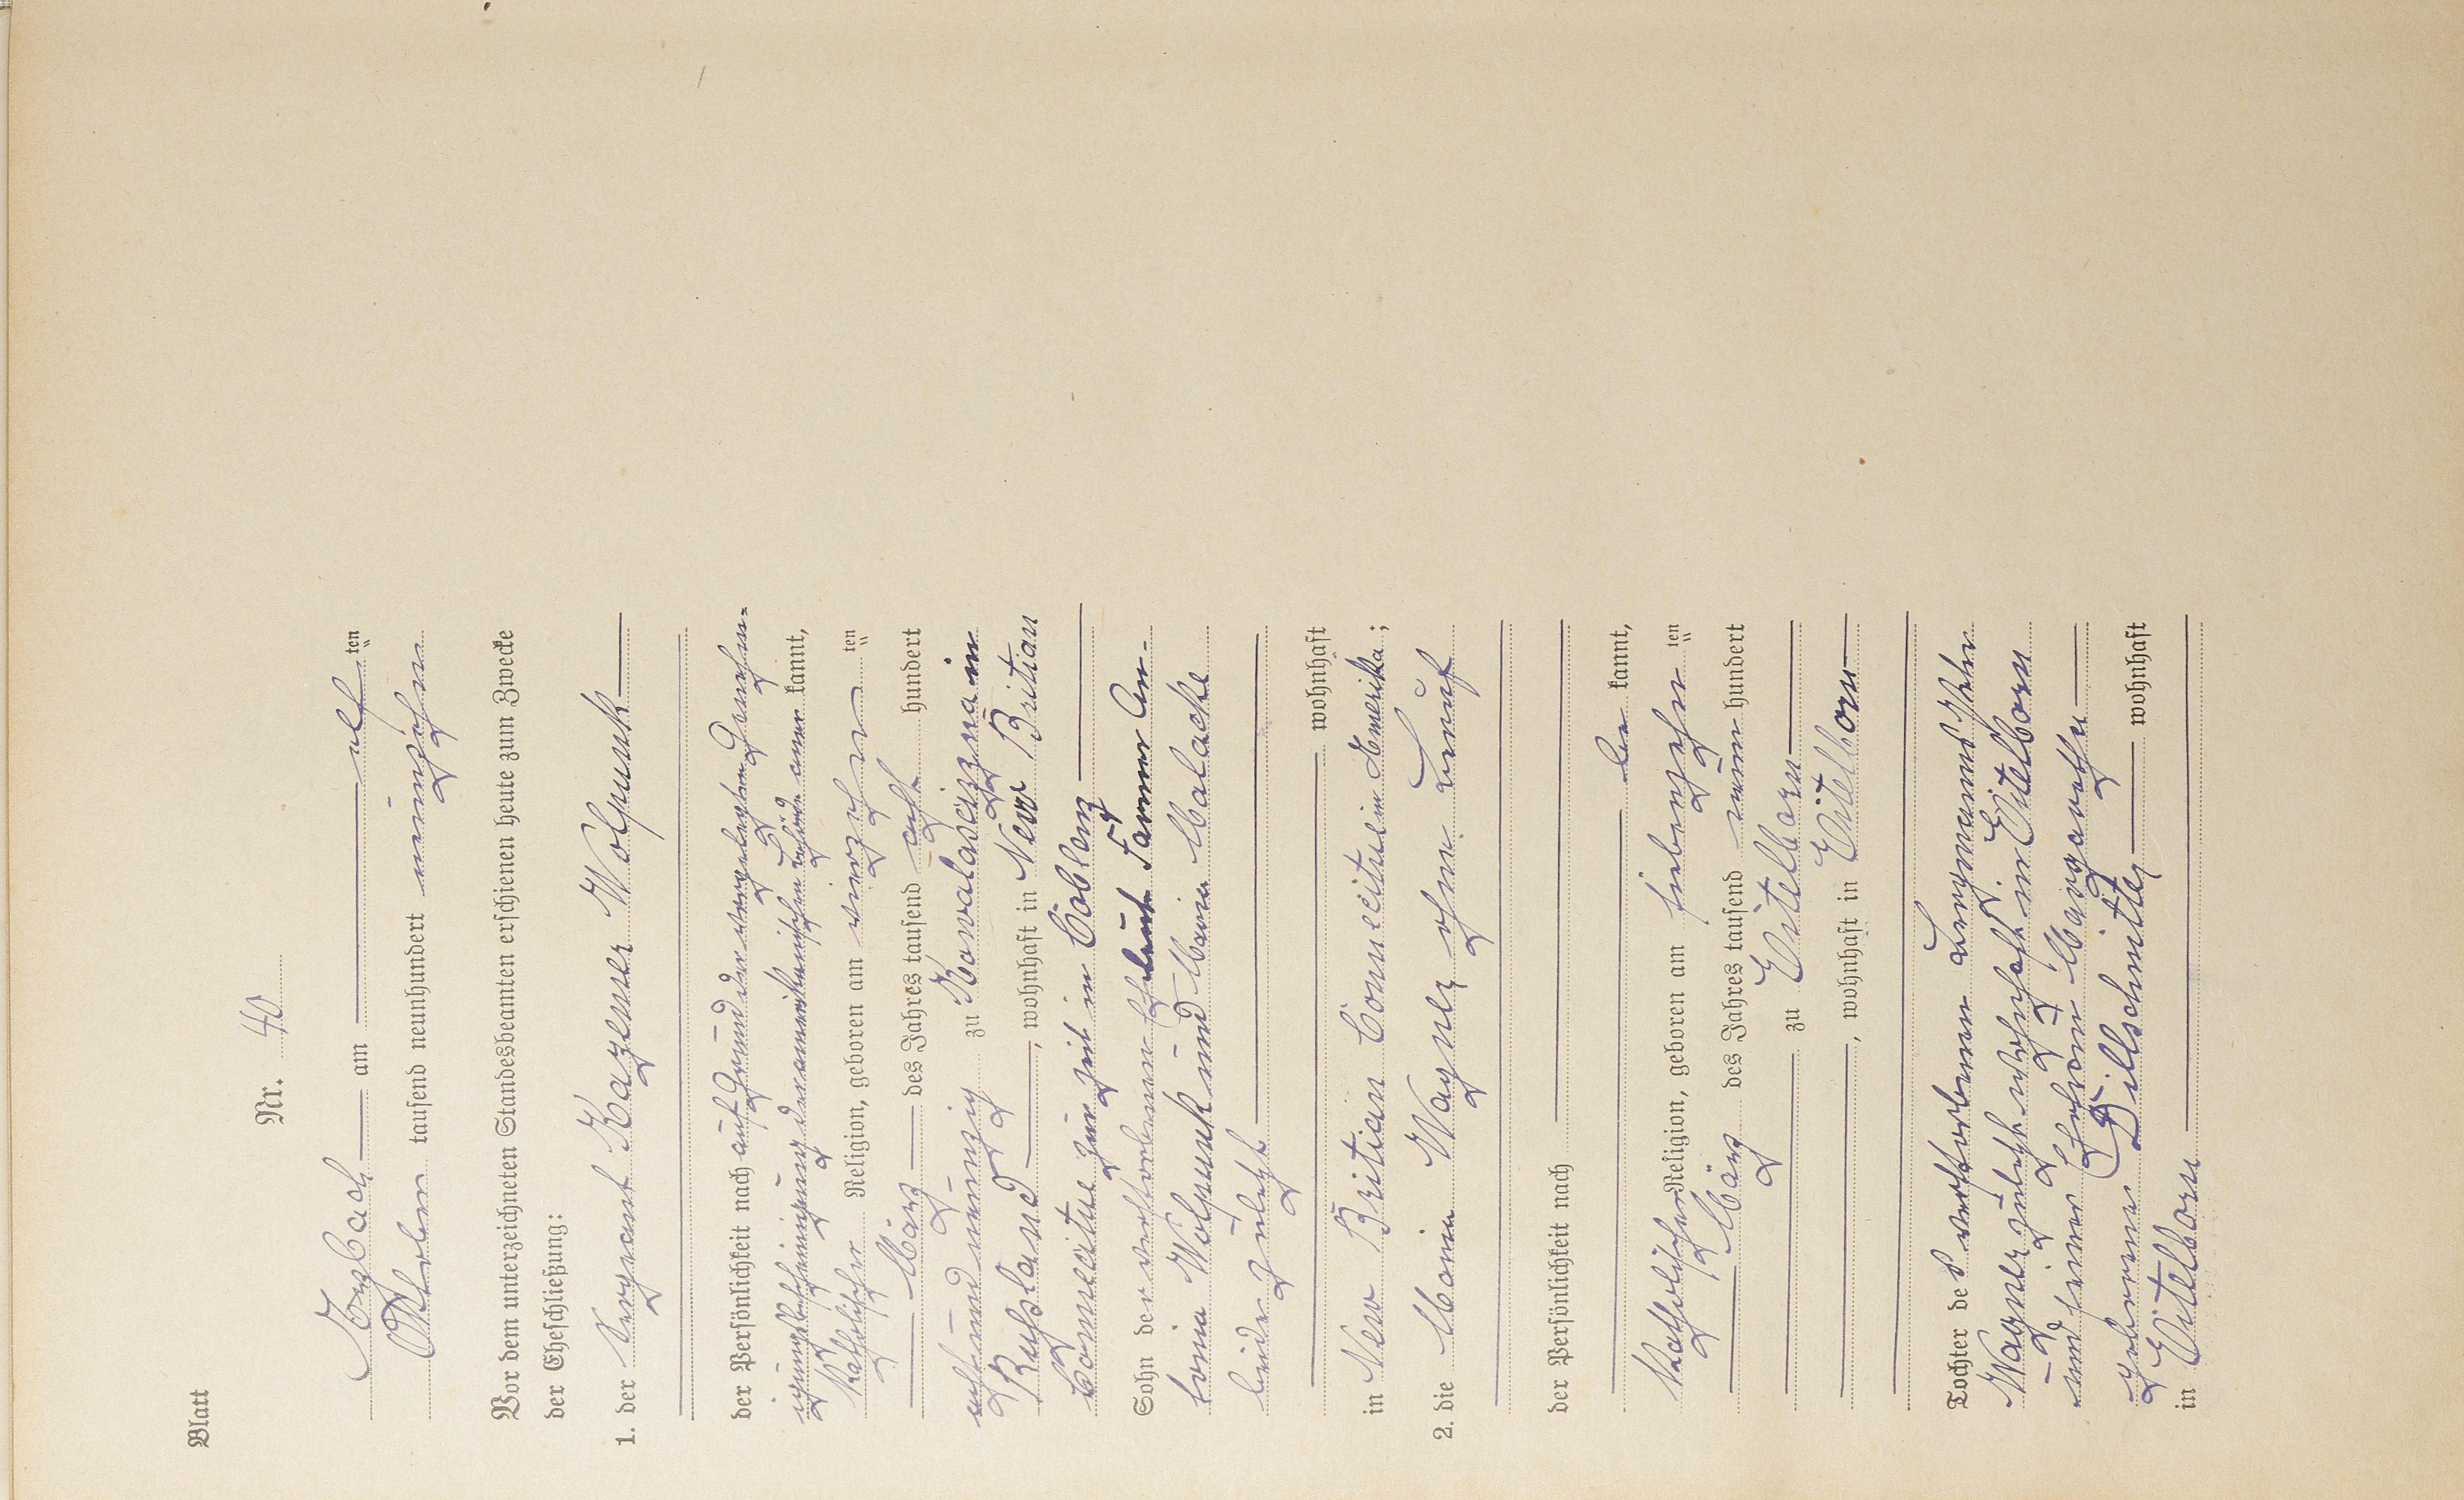 Blatt
Nr. 40
Arzbach am elf ten
Oktober tausend neunhundert neunzehn
Vor dem unterzeichneten Standesbeamten erschienen heute zum Zwecke
der Eheschließung:
1. der Sergeant Kazemer Wolpunk
der Persönlichkeit nach auf Grund der vorgelegten Genehm-
igungsbescheinigung der amerikanischen Behörde aner kannt,
katholischer Religion, geboren am vierzehn ten
März des Jahres tausend acht hundert
achtundneunzig zu Kowalascizna in
Russland, wohnhaft in New Britian
Connecitue zur Zeit in Coblenz
Sohn der verstorbenen Eheleute Farmer An-
tonia Wolpunk und Maria Malacke
beide zuletzt
wohnhaft
in New Britian Connecitut in Amerika;
2. die Maria Wagner ohne Beruf
der Persönlichkeit nach
be kannt,
katholischer Religion, geboren am siebenzehn ten
März des Jahres tausend neun hundert
zu Eitelborn
, wohnhaft in Eitelborn
Tochter des verstorbenen Bergmanns Peter
Wagner zuletzt wohnhaft in Eitelborn
und seiner Ehefrau Margarethe
geborene Dillschnitter wohnhaft
in Eitelborn